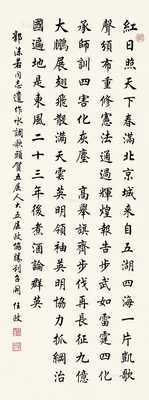 紅日照天下春滿北京城來自五湖四海一片凱歌
聲頒布重修憲法通過輝煌報告步武如雷霆四化
承師訓四害化灰塵 高舉旗齊步伐再長征九億
大鵬展翅飛散滿天雲英明領袖英明協力抓綱治
國遍地是東風二十三年後煮酒論群英
郭沫若同志遺作水調歌頭賀五屆人大五屆政協勝利召開 任政